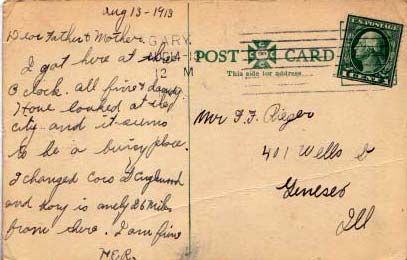 Aug 13-1913
Dear Father & Mother.
I got here at
O clock. all fine & dandy.
I have looked at the
city and it seems
to be a busy place.
I changed cars at Englewood
and Gary is only 26 miles
from there. I am fine
H.E.R.
GARY,
12 M
POST CARD
This side for address.
U.S. POSTAGE
1 CENT 1
Mr F. F. Rieger
401 Wells
Geneseo
Ill